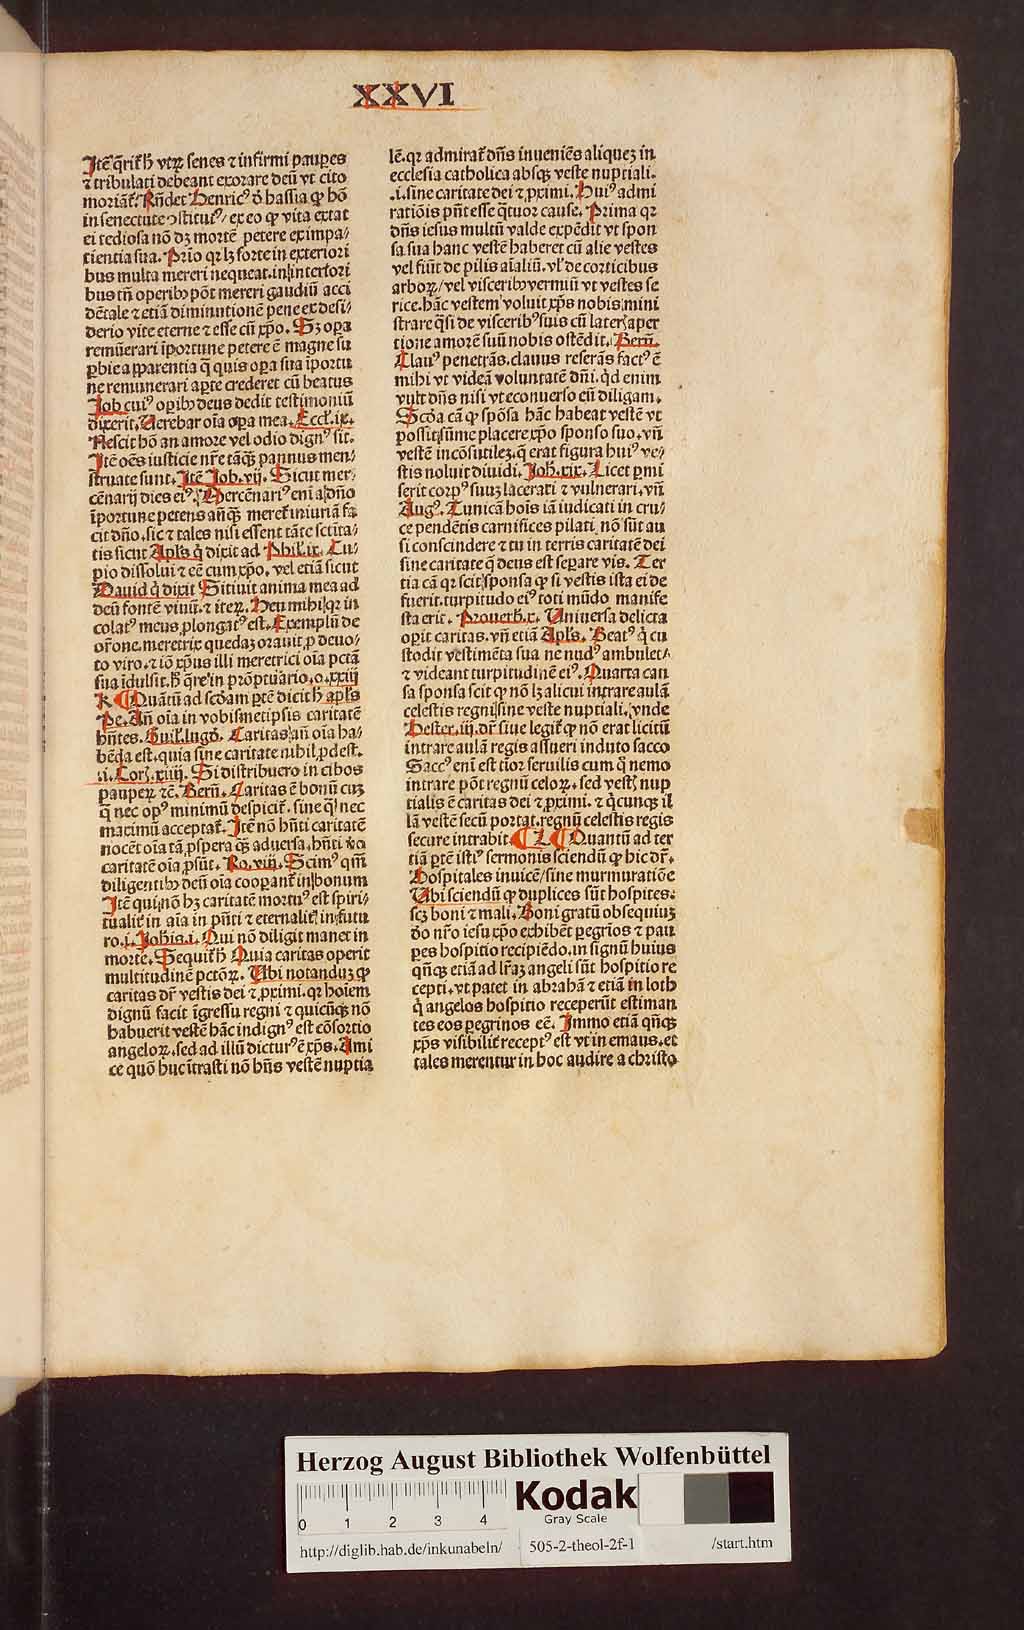 XXVI
Itē q̄rit᷑ h̄ vtꝝ senes ⁊ infirmi paup̄es
⁊ tribulati debeant exorare deū vt cito
moriāt᷑. Rn̄det Henricꝰ d̓ hassia ꝙ hō
in senectute ꝯstitutꝰ / ex eo ꝙ vita extat
ei tediosa nō dꝫ mortē petere ex impa⸗
tientia sua. Prīo qꝛ lꝫ forte in exteriori
bus multa mereri nequeat. in interiori
bus tn̄ operibꝫ pōt mereri gaudiū acci
dētale ⁊ etiā diminutionē pene ex desi⸗
derio vite eterne ⁊ esse cū xp̄o. Sꝫ oꝑa
remūerari īportune petere ē magne su
ꝑbie apparentia q̄ quis oꝑa sita īportu
ne remunerari aꝑte crederet cū beatus
Job cuiꝰ oꝑibꝫ deus dedit testimoniū
dixerit. Verebar oīa oꝑa mea. Eccl̓. ix.
Nescit hō an amore vel odio dignꝰ sit.
Itē oēs iusticie nr̄e tāꝗꝫ pannus men⸗
struate sunt. Itē Job. vij. Sicut mer⸗
cēnarij dies eiꝰ. Mercēnariꝰ enī a dn̄o
īportune petens an̄ꝗꝫ meret᷑ iniuriā fa
cit dn̄o. sic ⁊ tales nisi essent tāte sctīta⸗
tis sicut Apl̓s q̓ dixit ad Phil̓. ix. Cu⸗
pio dissolui ⁊ eē cum xp̄o. vel etiā sicut
Dauid q̓ dixit Sitiuit anima mea ad
deū fontē viuū. ⁊ iteꝝ. Heu mihi qꝛ in
colatꝰ meus ꝓlongatꝰ est. Exemplū de
or̄one. meretrix quedaꝫ orauit ꝓ deuo⸗
to viro. ⁊ iō xp̄us illi meretrici oīa pctā
sua īdulsit. h̄ q̄re in prōptuario. o. xxiij
K ¶ Quātū ad scdam ꝑtē dicit h̄ apl̓s
Pe. An̄ oīa in vobismetipsis caritatē
hn̄tes. Guil̓. lugd̓. Caritas an̄ oīa ha⸗
bēda est. quia sine caritate nihil ꝓdest.
.i. Cor̓. xiij. Si distribuero in cibos
pauperꝝ ⁊c̄. Bern̄. Caritas ē bonū cuꝫ
q̄ nec opꝰ minimū despicit᷑. sine q̄ nec
maximū acceptat᷑. Itē nō hn̄ti caritatē
nocēt oīa tā ꝓspera ꝗꝫ aduersa. hn̄ti v̓o
caritatē oīa ꝓsūt. Ro. viij. Scimꝰ qm̄
diligentibꝫ deū oīa cooꝑant᷑ in bonum
Itē qui nō hꝫ caritatē mortuꝰ est spiri⸗
tualit᷑ in aīa in pn̄ti ⁊ eternalit᷑ in futu
ro. j. Joh̄is. i. Qui nō diligit manet in
morte. Sequit᷑ h̄ Quia caritas operit
multitudinē pctōꝝ. Ubi notanduꝫ ꝙ
caritas dr̄ vestis dei ⁊ ꝓximi. qꝛ hoīem
dignū facit īgressu regni ⁊ quicūꝗꝫ nō
habuerit vestē hāc indignꝰ est cōsortio
angeloꝝ. sed ad illū dicturꝰ ē xp̄s. Ami
ce quō huc ītrasti nō hn̄s vestē nuptia
lē. qꝛ admirat᷑ dn̄s inueniēs aliqueꝫ in
ecclesia catholica absꝗꝫ veste nuptiali.
.i. sine caritate dei ⁊ ꝓximi. Huiꝰ admi
ratiōis pn̄t esse q̄tuor cause. Prima qꝛ
dn̄s iesus multū valde expēdit vt spon
sa sua hanc vestē haberet cū alie vestes
vel fiūt de pilis aīaliū. vl̓ de corticibus
arboꝝ / vel visceribꝫ vermiū vt vestes se
rice. hāc vestem voluit xp̄s nobis mini
strare q̄si de visceribꝰ suis cū lateris aper
tione amorē suū nobis ostēdit. Bern̄.
Clauꝰ penetrās. clauus reserās factꝰ ē
mihi vt videā voluntatē dn̄i. qd̓ enim
vult dn̄s nisi vt econuerso eū diligam.
Scd̓a cā ꝙ spōsa hāc habeat vestē vt
possit sūme placere xp̄o sponso suo. vn̄
vestē incōsutileꝫ q̄ erat figura huiꝰ ve⸗
stis noluit diuidi. Joh̄. xix. Licet ꝑmi
serit corpꝰ suuꝫ lacerati ⁊ vulnerari. vn̄
Augꝰ. Tunicā hoīs iā iudicati in cru⸗
ce pendētis carnifices pilati nō sūt au
si conscindere ⁊ tu in terris caritatē dei
sine caritate q̄ deus est seꝑare vis. Ter
tia cā qꝛ scit sponsa ꝙ si vestis ista ei de
fuerit. turpitudo eiꝰ toti mūdo manife
sta erit. Prouerb̄. x. Uniuersa delicta
oꝑit caritas. vn̄ etiā Apl̓s. Beatꝰ q̓ cu
stodit vestimēta sua ne nudꝰ ambulet.
⁊ videant turpitudinē eiꝰ. Quarta cau
sa sponsa scit ꝙ nō lꝫ alicui intrare aulā
celestis regni sine veste nuptiali. vnde
Hester. iij. dr̄ siue legit᷑ ꝙ nō erat licitū
intrare aulā regis assueri induto sacco
Saccꝰ enī est tior seruilis cum q̄ nemo
intrare pōt regnū celoꝝ. sed vest᷑ nup
tialis ē caritas dei ⁊ ꝓximi. ⁊ q̄cunꝗꝫ il
lā vestē secū portat. regnū celestis regis
secure intrabit. ¶ L ¶ Quantū ad ter
tiā ꝑtē istiꝰ sermonis sciendū ꝙ hic dr̄.
Hospitales inuicē / sine murmuratiōe
Ubi sciendū ꝙ duplices sūt hospites:
scꝫ boni ⁊ mali. Boni gratū obsequiuꝫ
dō nr̄o iesu xp̄o exhibēt ꝑegrīos ⁊ pau
ꝑes hospitio recipiēdo. in signū huius
qn̄ꝗꝫ etiā ad lr̄aꝫ angeli sūt hospitio re
cepti. vt patet in abrahā ⁊ etiā in loth
q̓ angelos hospitio receperūt estiman
tes eos ꝑegrinos eē. Immo etiā qn̄ꝗꝫ
xp̄s visibilit᷑ receptꝰ est vt in emaus. et
tales merentur in hoc audire a christo
Herzog August Bibliothek Wolfenbüttel
0 1 2 3 4
Kodak
Gray Scale
http://diglib.hab.de/inkunabeln/ 505-2-theol-2f-1 /start.htm